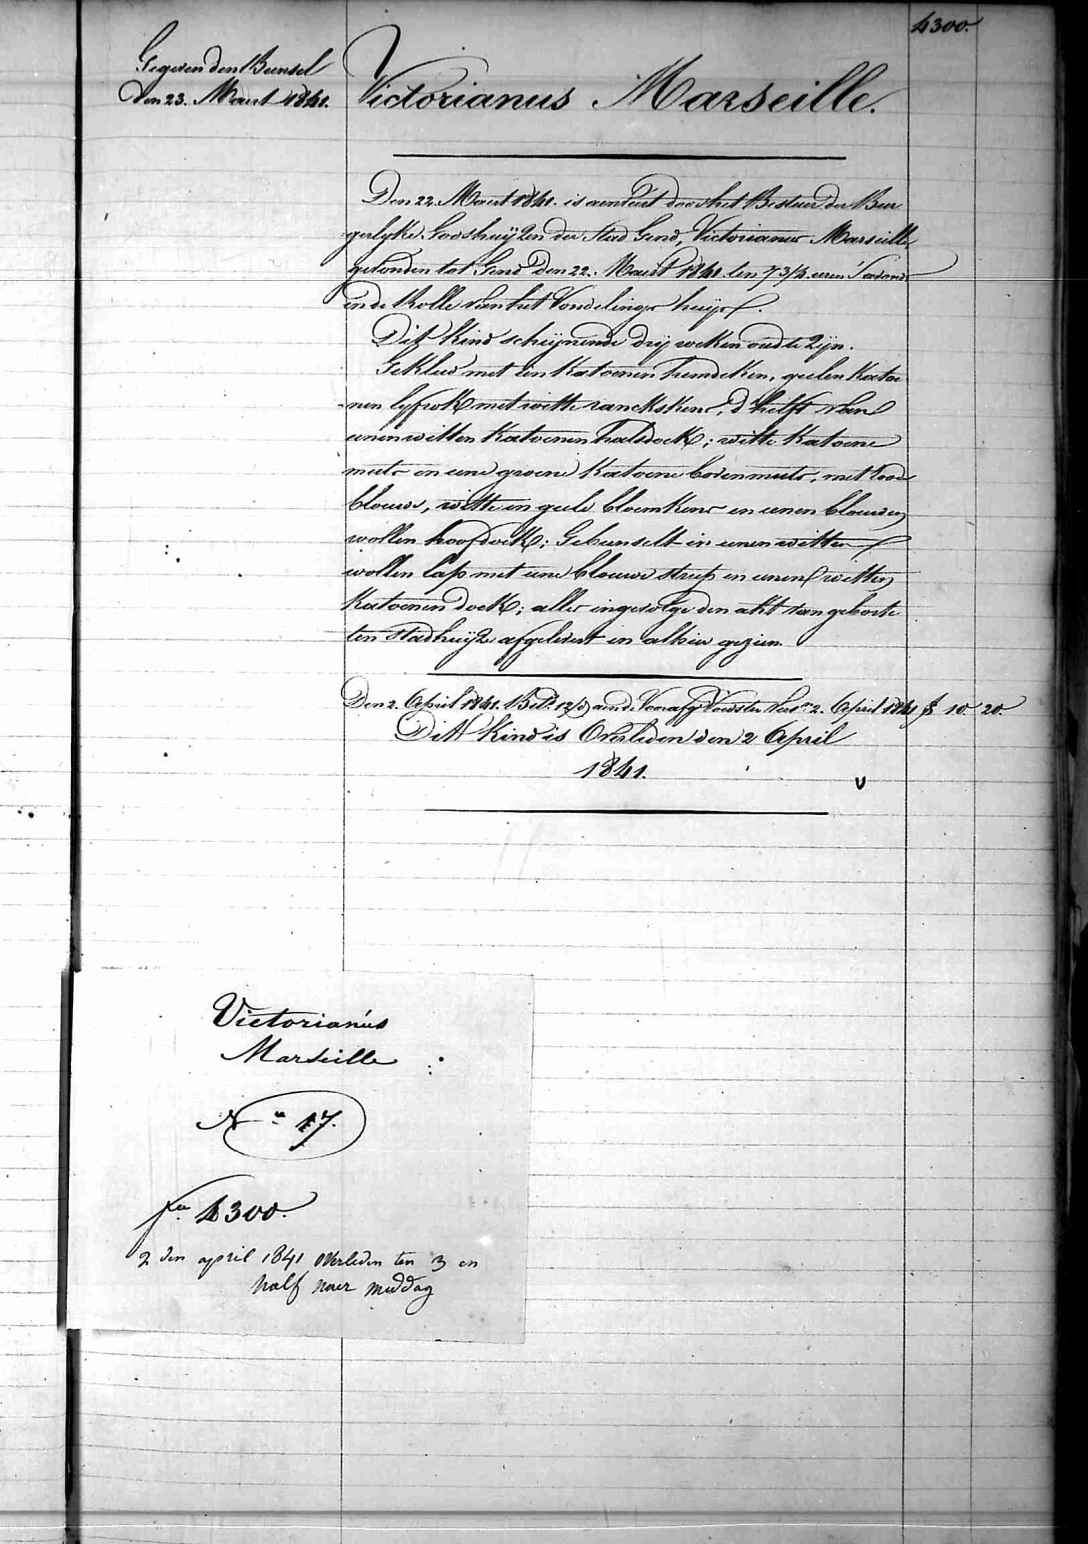 4300.
Gegeven den Bunsel
den 23. Maert 1841.
Victorianus Marseille.
Den 22. Maert 1841. is aenveirt door het Bestuer der Bur
gerlyke Godshuyzen der stad Gend, Victorianus Marseille
gevonden tot Gend den 22. Maert 1841. ten 7 3/4 uren 's avonds
in de Rolle van het Vondelings huys.
Dit kind schijnende drij weken oud te zijn.
Gekleed met een katoenen hemdeken, geelen katoe
nen lyfrok met witte ranckskens, d'helft van
eenen witten katoenen halsdoek; witte katoene
muts en eene groene katoene bovenmuts, met rood
blouw, witte en geele bloemkens en eenen blouwen
wollen hoofdoek; Gebunselt in eenen witten
wollen lap met eene blouwe streep en eenen witten
katoenen doek; alles ingevolge den akt van geboorte
ten stadhuyze afgelevert en alhier gezien.
Den 2. April 1841. Bet. 12/0 aen de Voorafg Voedster tot 2. April 1841 f 10 20.
Dit kind is Overleden den 2 April
1841.
Victorianus
Marseille
N° 17.
fo 4300.
2 den april 1841 overleden ten 3 en
half naer middag